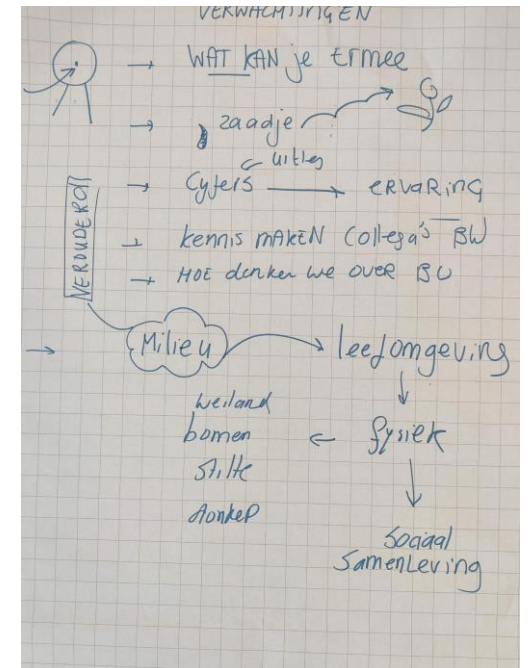 VERWACHTINGEN
WAT KAN je ermee
zaadje
uitleg
Cyfers ERVARING
VEROUDERD
kennis MAKEN Collega's BW
HOE denken we over BU
Milieu leefomgeving
weiland
bomen fysiek
Stilte
donker
Sociaal
SamenLeving